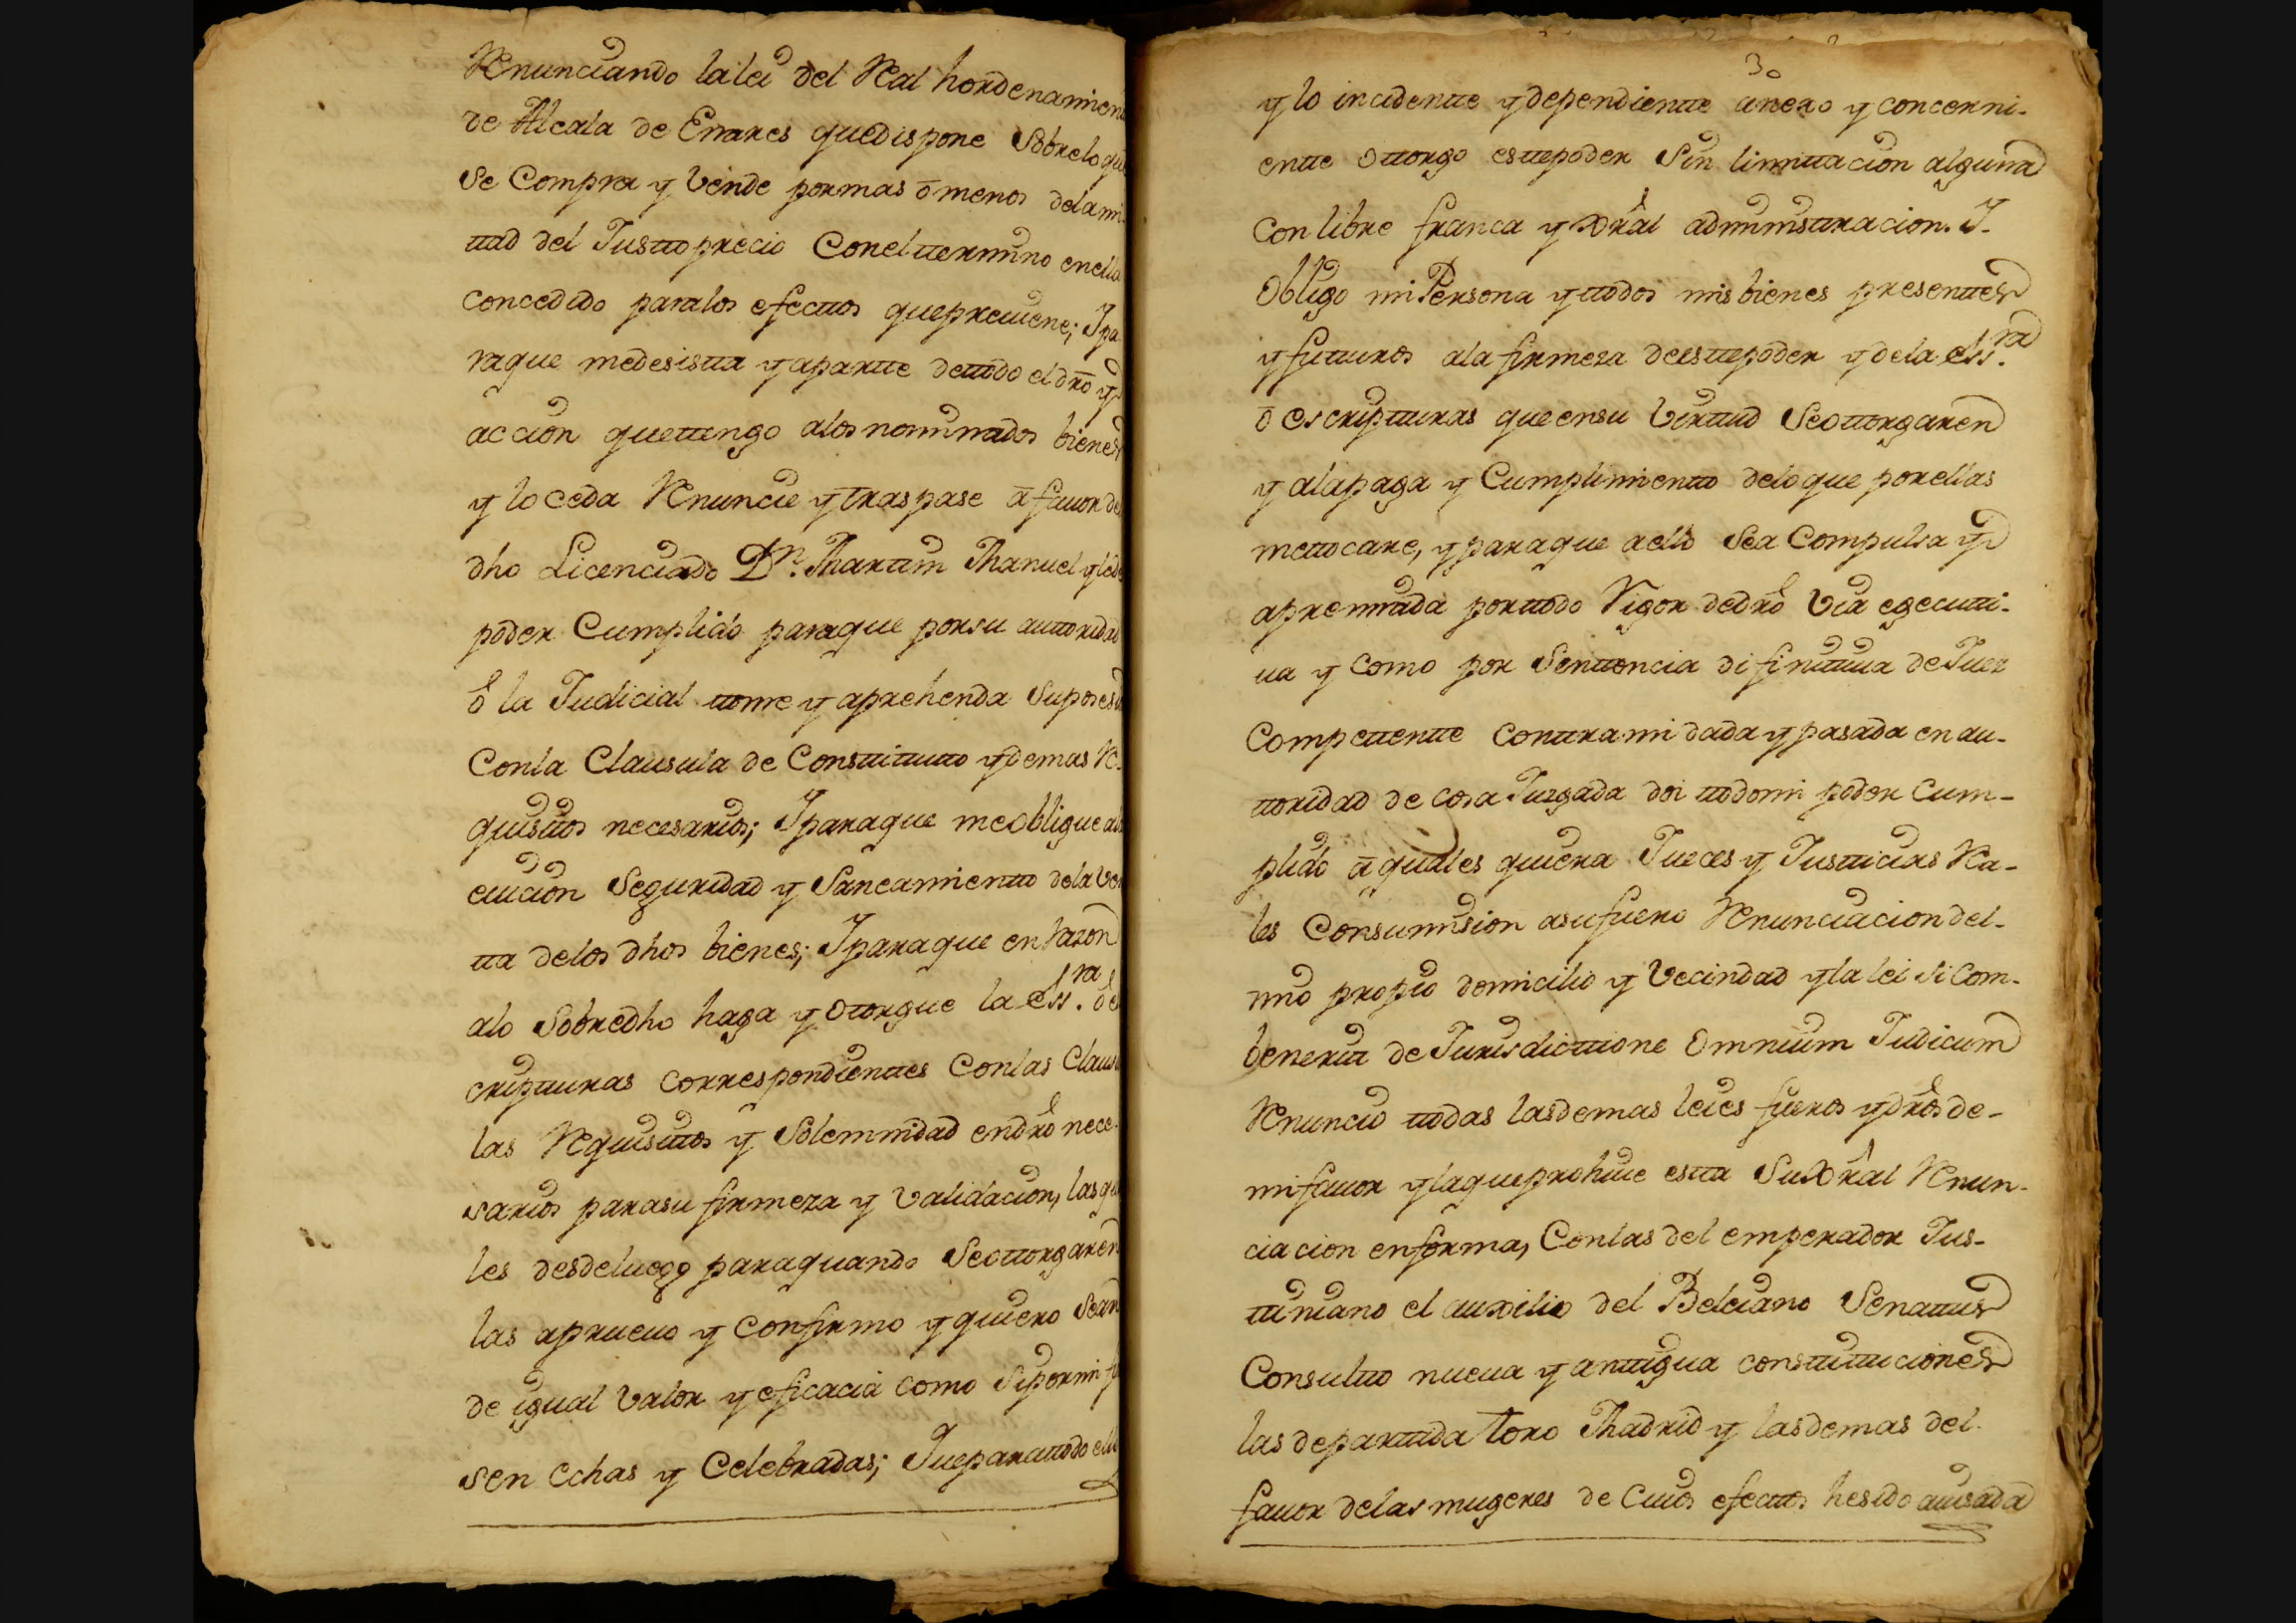 Renunciando la lei del Real hordenamien
de Alcala de Enares que dispone Sobre lo que
Se Compra y Vende por mas o menos de la mi
ttad del Justto precio Con el ttermino en ella
concedido para los efecttos que preuiene; Y pa
ra que me desistta y apartte de ttodo el dro y
accion que ttengo a los nominados bienes
y lo ceda Renuncie y traspase a fauor de
dho Licenciado Dn. Martin Manuel y le de
poder Cumplido para que por su auttoridad
o la Judicial ttome y aprehenda Su poses
Con la Clausula de Consttitutto y demas Re-
quisittos necesarios; Y para que me obligue a la
euiccion Seguridad y Saneamientto de la Ven
tta de los dhos bienes; Y para que en razon
a lo Sobredho haga y otorgue la ess.ra o es
cripturas correspondienttes Con las Clausu
las Requisittos y Solemnidad en dro nece-
sarios para su firmeza y Validacion, las qua
les desde luego para quando Se ottorgaren
las aprueuo y confirmo y quiero Sean
de igual valor y eficacia como Si por mi fu
sen echas y Celebradas; Que para ttodo ello
30
y lo incidentte y dependientte anexo y concerni-
entte Ottorgo estte poder Sin limittacion alguna
Con libre franca y Xral administtracion. Y-
Obligo mi Persona y ttodos mis bienes presenttes
y futturos a la firmeza de estte poder y de la ess.ra
o escriptturas que en su Virttud Se ottorgaren
y a la paga y Cumplimientto de lo que por ellas
me ttocare, y para que a ello Sea Compulsa y
apremiada por ttodo Rigor de dro Via egecutti-
ua y como por Senttencia difinittiua de Juez
Compettentte Conttra mi dada y pasada en au-
ttoridad de cosa Juzgada doi ttodo mi poder Cum-
plido a quales quiera Jueces y Justticias Rea-
les Con sumision a su fuero Renunciacion del-
mio propio domicilio y Vecindad y la lei si com-
benerit de Jurisdicttione Omnium Judicum
Renuncio ttodas las demas leies fueros y dros de-
mi fauor y la que prohiue estta Su Xral Renun-
ciacion en forma, Con las del emperador Jus-
ttiniano el auxilio del Beleiano Senattus
Consultto nueua y anttigua consttittuciones
las de parttida toro Madrid y las demas del
fauor de las mugeres de Cuios efecttos he sido auisada